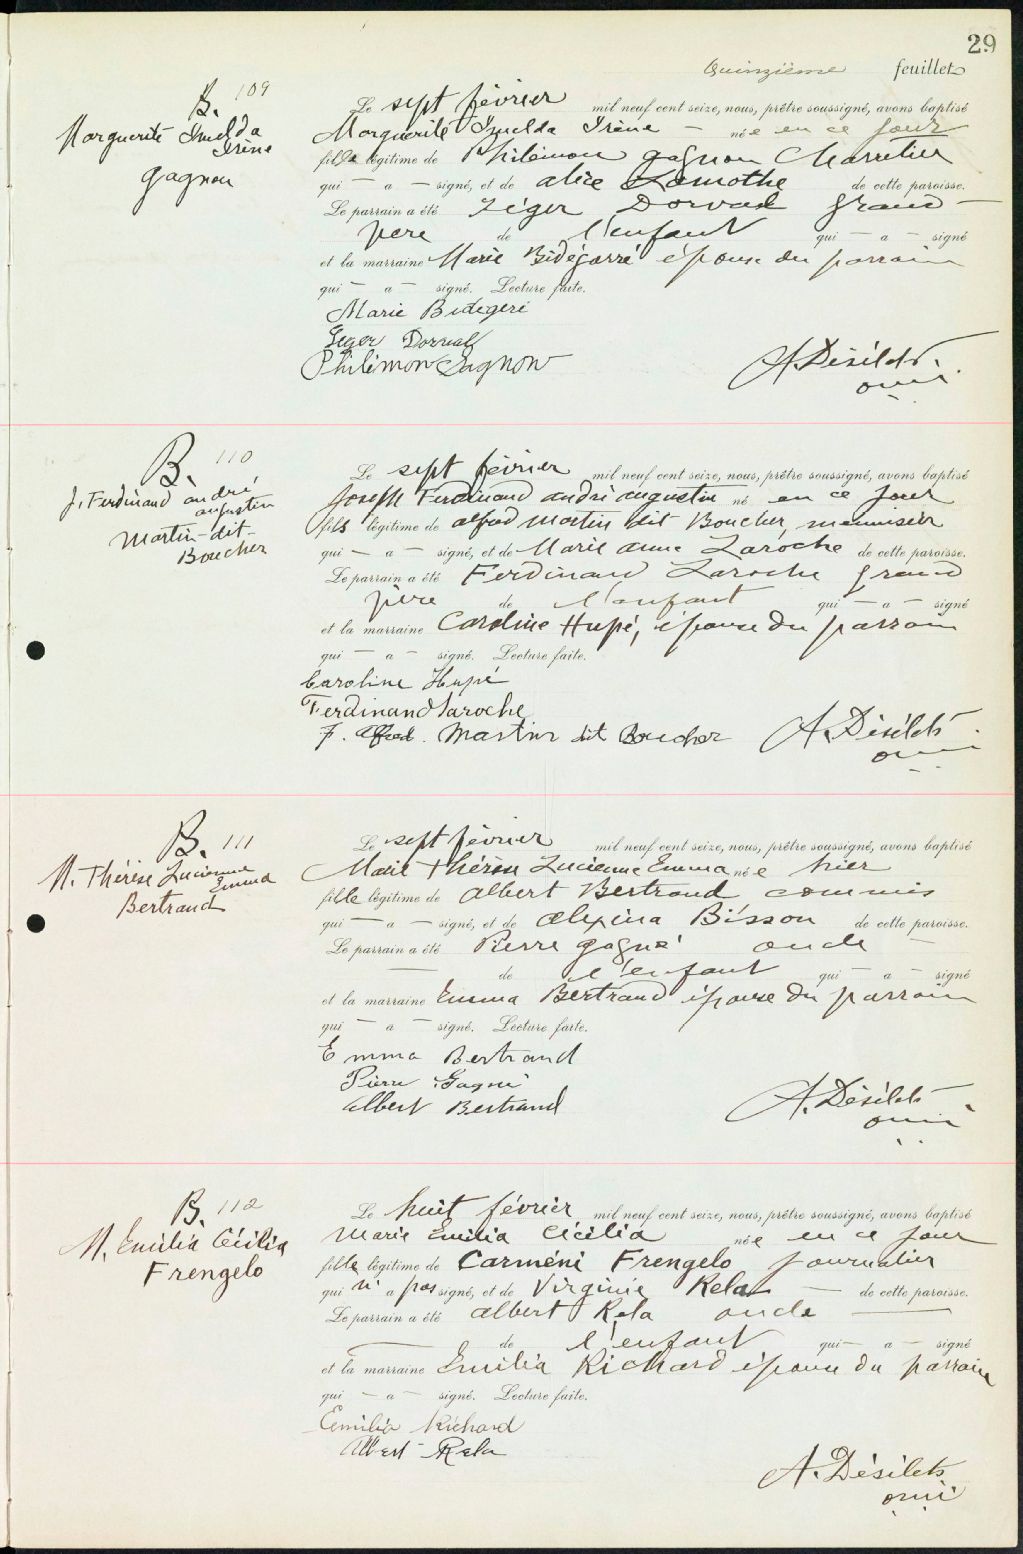 29
Quinzième feuillet
B. 109
Marguerite Imelda
Irène
Gagnon
Le sept février mil neuf cent seize, nous, prêtre soussigné, avons baptisé
Marguerite Imelda Irène — née en ce jour
fille légitime de Philémon Gagnon Charretier
qui — a — signé, et de Alice Lamothe de cette paroisse.
Le parrain a été Léger Dorval Grand —
père de l'enfant qui — a — signé
et la marraine Marie Bidégarré épouse du parrain
qui — a — signé. Lecture faite.
Marie Bidegeré
Leger Dorval
Philémon Gagnon
A. Désilets.
omi
B. 110
J. Ferdinand André
Augustin
Martin-dit-
Boucher
Le sept février mil neuf cent seize, nous, prêtre soussigné, avons baptisé
Joseph Ferdinand André Augustin né en ce jour
fils légitime de Alfred Martin dit Boucher, menuisier
qui — a — signé, et de Marie Anne Laroche de cette paroisse.
Le parrain a été Ferdinand Laroche Grand
père de l'enfant qui — a — signé
et la marraine Caroline Hupé, épouse du parrain
qui — a — signé. Lecture faite.
Caroline Hupé
Ferdinand Laroche
F. Alfred Martin dit Boucher
A. Désilets
omi
B. 111
M. Thérèse Lucienne
Emma
Bertrand
Le sept février mil neuf cent seize, nous, prêtre soussigné, avons baptisé
Marie Thérèse Lucienne Emma née hier
fille légitime de Albert Bertrand commis
qui — a — signé, et de Alexina Bisson de cette paroisse.
Le parrain a été Pierre Gagné oncle —
— de l'enfant qui — a — signé
et la marraine Emma Bertrand épouse du parrain
qui — a — signé. Lecture faite.
Emma Bertrand
Pierre Gagné
Albert Bertrand
A. Désilets
omi
B. 112
M. Emilia Cécilia
Frengelo
Le huit février mil neuf cent seize, nous, prêtre soussigné, avons baptisé
Marie Emilia Cécilia née en ce jour
fille légitime de Carméni Frengelo journalier
qui n' a pas signé, et de Virginie Rela — de cette paroisse.
Le parrain a été Albert Rela oncle —
— de l'enfant qui — a — signé
et la marraine Emilia Richard épouse du parrain
qui — a — signé. Lecture faite.
Emilia Richard
Albert Rela
A. Désilets
omi